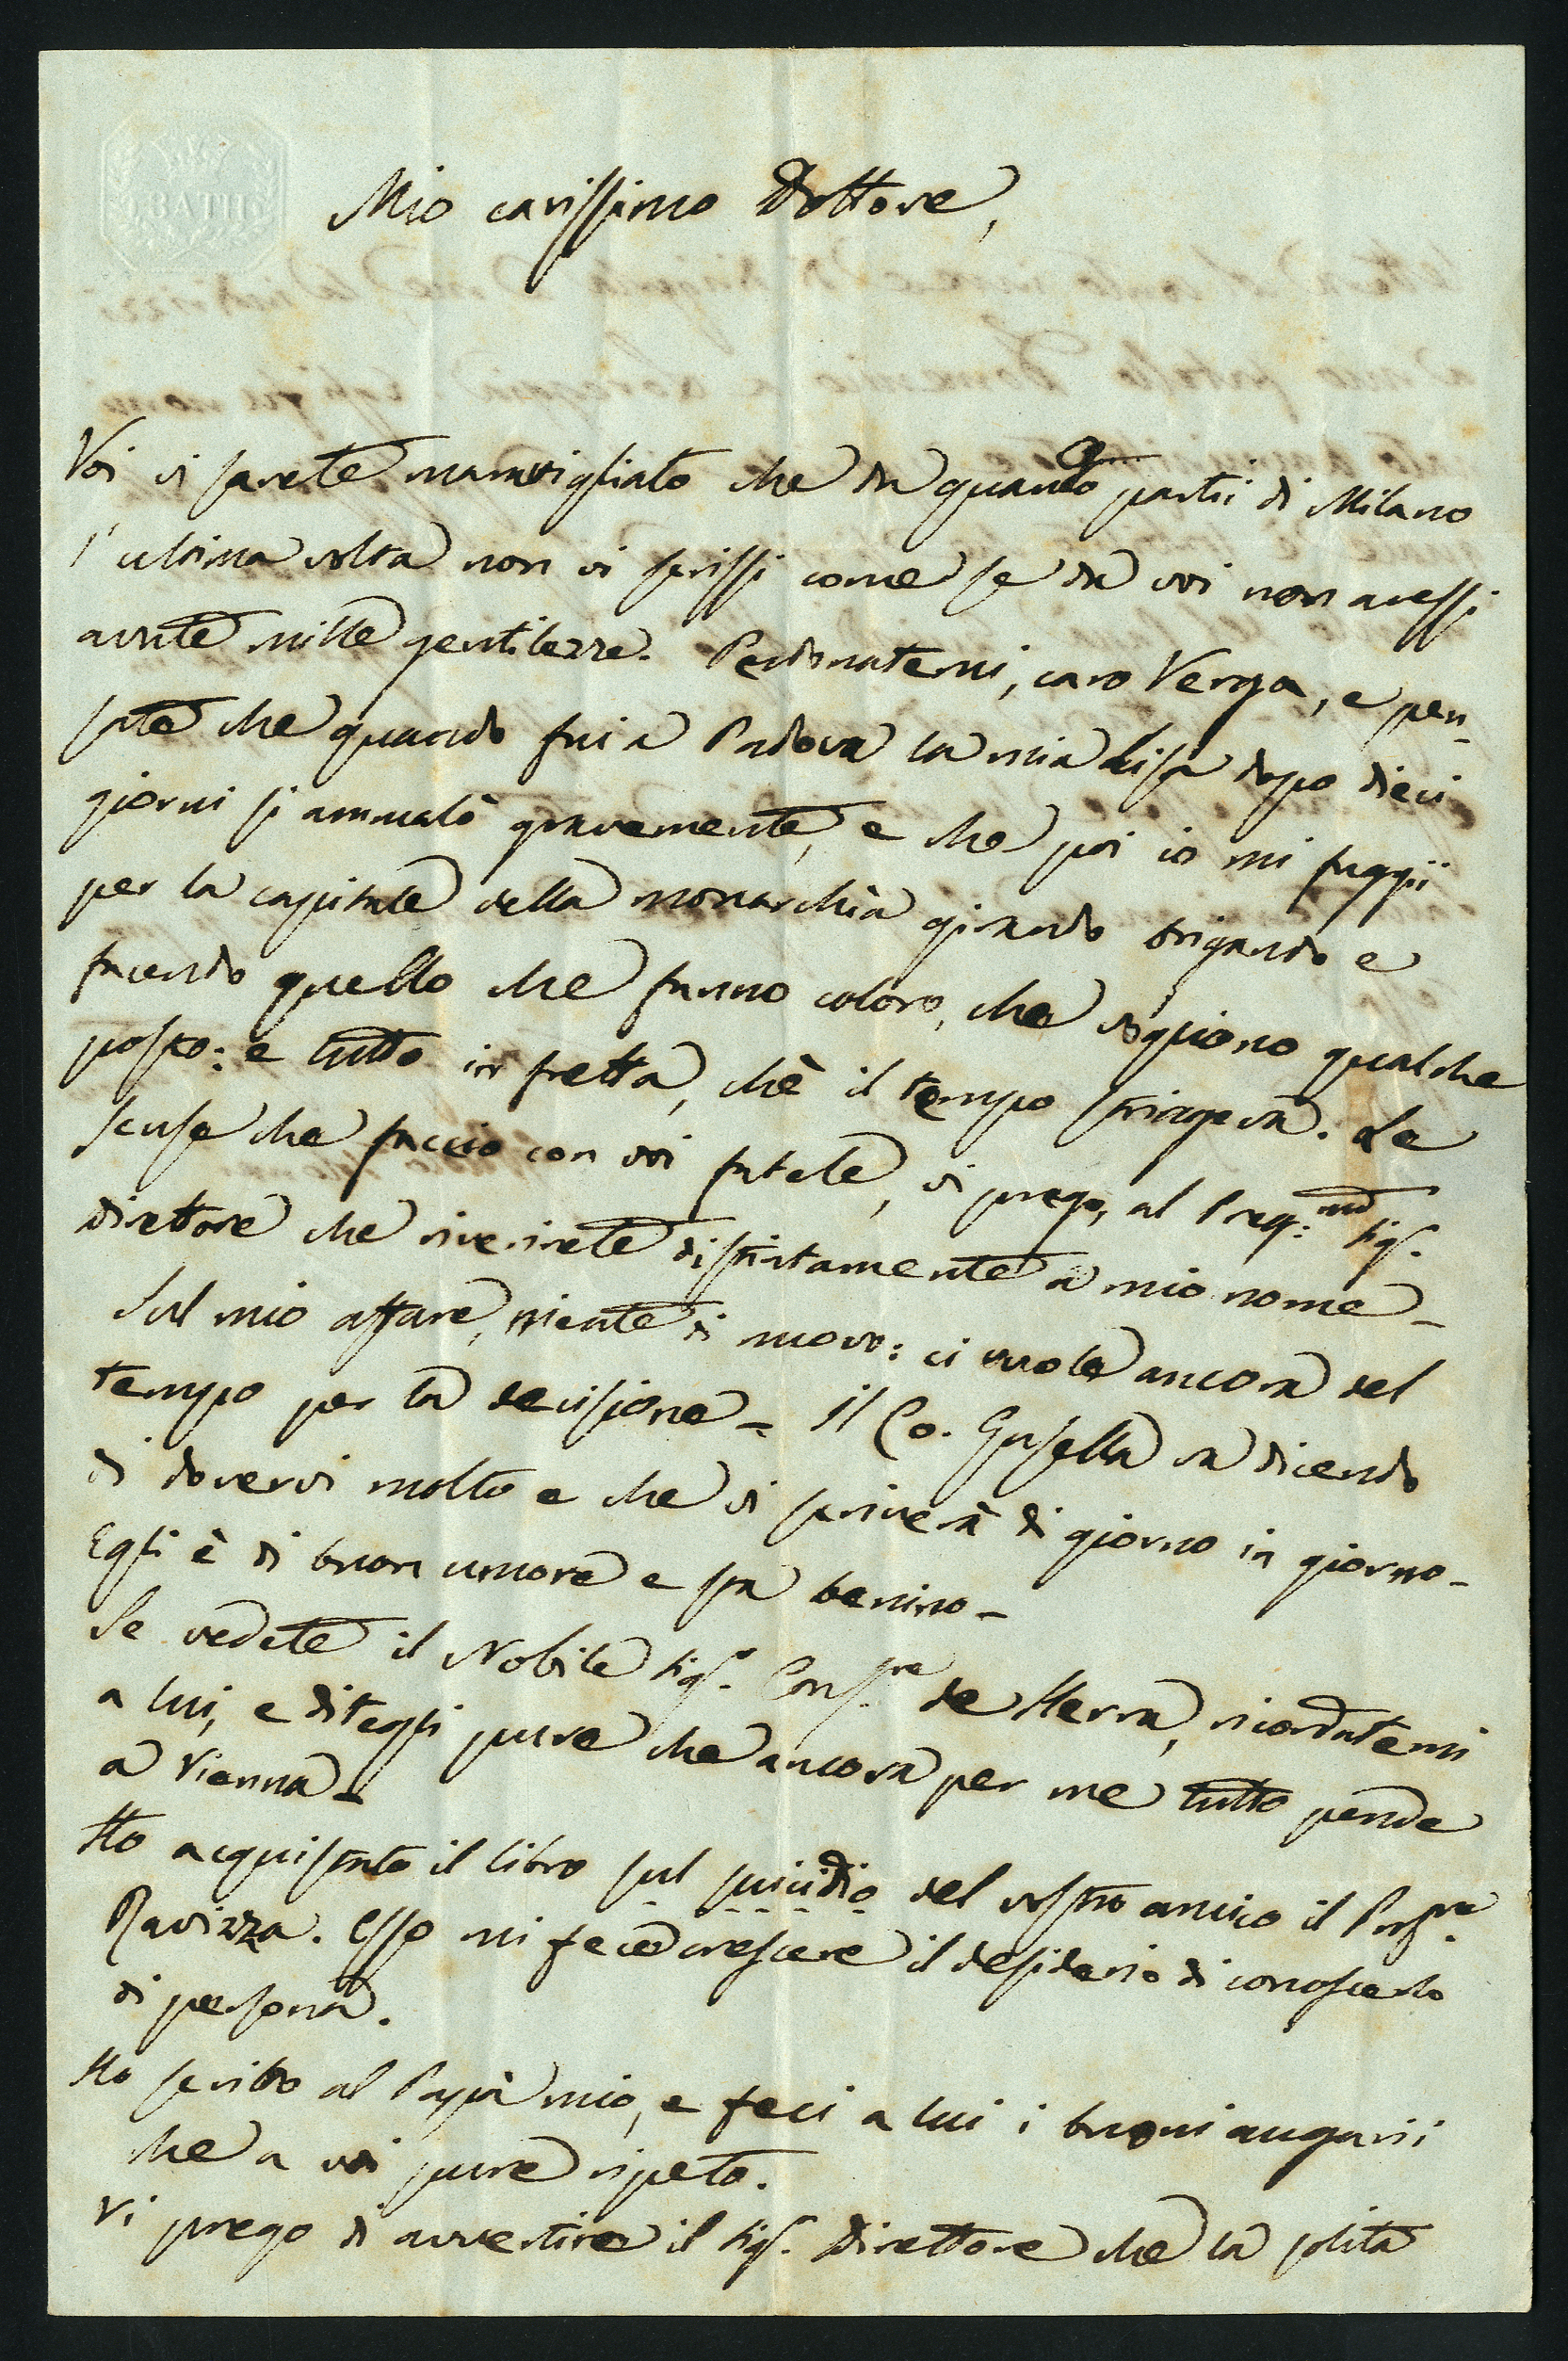 BATH
Mio carissimo Dottore,
Voi vi sarete maravigliato che da quando partii di Milano
l'ultima volta non vi scrissi come se da voi non avessi
avute mille gentilezze. Perdonatemi, caro Verga, e pen-
sate che quando fui a Padova la mia Lisa dopo dieci
giorni si ammalò gravemente, e che poi io mi fuggii
per la capitale della monarchia girando brigando e
facendo quello che fanno coloro, che vogliono qualche
posto: e tutto in fretta, chè il tempo stringeva. Le
scuse che faccio con voi fatele, vi prego, al Preg.mo Sig.
Direttore che riverirete distintamente a mio nome -
Sul mio affare, niente di nuovo: ci vuole ancora del
tempo per la decisione - Il Co. Gusella va dicendo
di dovervi molto e che vi scriverà di giorno in giorno -
Egli è di buon umore e sta benino -
Se vedete il Nobile Sig.r Cons.re de Herra, ricordatemi
a lui, e ditegli pure che ancora per me tutto pende
a Vienna -
Ho acquistato il libro sul suicidio del vostro amico il Prof.re
Ravizza. Esso mi fece crescere il desiderio di conoscerlo
di persona.
Ho scritto al Papà mio, e feci a lui i buoni augurii
che a voi pure ripeto.
Vi prego di avvertire il Sig. Direttore che la solita